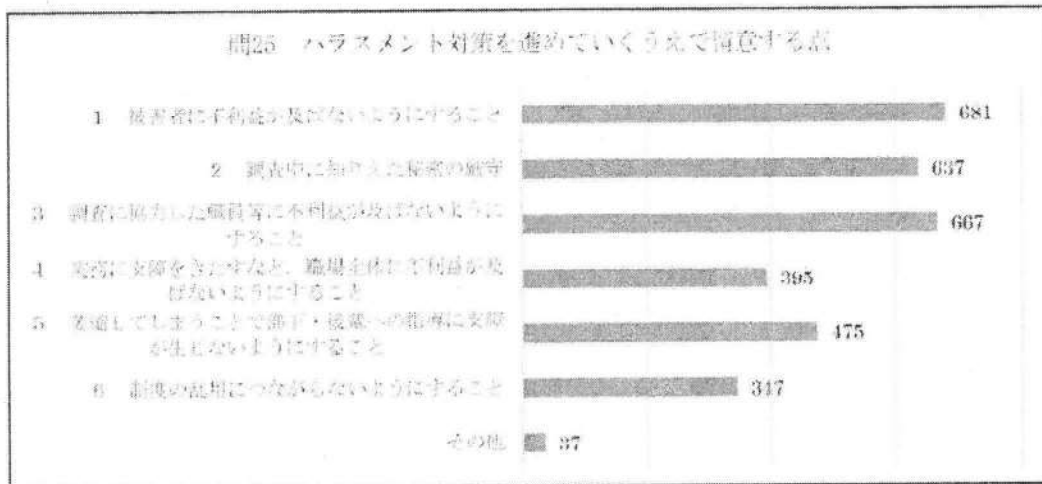 問25　ハラスメント対策を進めていくうえで留意する点
1　被害者に不利益が及ばないようにすること
681
2　調査中に知りえた秘密の厳守
637
3　調査に協力した職員等に不利益が及ばないように
すること
667
4　業務に支障をきたすなど、職場全体に不利益が及
ばないようにすること
395
5　委縮してしまうことで部下・後輩への指導に支障
が生じないようにすること
475
6　制度の乱用につながらないようにすること
347
その他
37